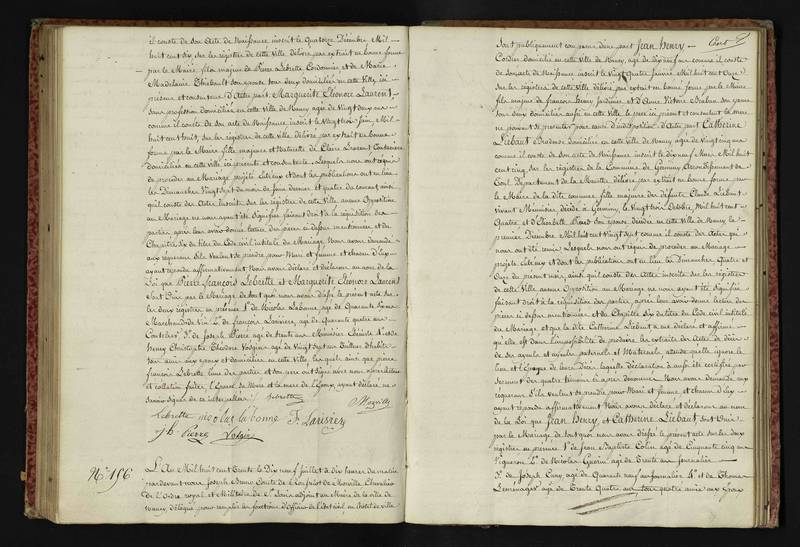 il conste de son Acte de Naissance inscrit le Quatorze Décembre Mil
huit cent six, sur les registres de cette Ville délivré par extrait en bonne forme
par le Maire, fils majeur de Pierre Lebrette Cordonnier et de Marie
Madelaine Thiebault son épouse tous deux domiciliés en cette Ville, ici
présens et consentans D'autre part Marguerite Eléonore Laurent,
sans profession domiciliée en cette Ville de Nancy, agée de Vingt deux ans
comme il conste de son acte de Naissance inscrit le Vingt trois Juin, Mil
huit cent huit, sur les registres de cette Ville, délivré par extrait en bonne
forme par le Maire fille majeure et Naturelle de Claire Laurent Couturière
domiciliée en cette ville ici présente et consentante, Lesquels nous ont requis
de procéder au Mariage projeté entr'eux et dont les publications ont eu lieu
les Dimanches Vingt sept du mois de Juin dernier et quatre du courant ainsi
qu'il conste des Actes Inscrits sur les registres de cette Ville aucune Opposition
au Mariage ne nous ayant été Signifiée faisant droit à la réquisition des
parties, après leur avoir donné lecture des pièces ci dessus mentionnées et du
Chapitre Six du titre du Code civil intitulé du Mariage. Nous avons demandé
aux requérans s'ils veulent se prendre pour Mari et femme et chacun d'eux
ayant répondu affirmativement Nous avons déclaré et déclarons au nom de la
Loi que Pierre François Lebrette et Marguerite Eléonore Laurent
Sont Unis par le Mariage de tout quoi nous avons dressé le présent acte sur
les deux registres en présence 1° de Nicolas Labonne, agé de Quarante
Marchand de Vin 2° de François Larivière, agé de Quarante quatre ans
3° de Joseph Pierre agé de trente ans Menuisier 4° et de
Henry Christophe Théodore Vosgien agé de Vingt sept ans Tailleur d'habits
tous amis aux époux et domiciliés en cette Ville, lesquels ainsi que pierre
françois Lebrette l'une des parties et son pere ont signé avec nous après lecture
et collation faites, l'Epouse sa Mere et la mere de l'Epoux ayant déclaré ne
savoir signer de ce interpellées. Lebrette
Lebrette nicolas la bonne F. Larivier
jh. Pierre Vosgin
N° 196
L'An Mil huit cent trente le Dix neuf Juillet à Dix heures du matin
pardevant nous Joseph Comte de Morville Chevalier
de l'Ordre royal et Militaire de St Louis adjoint au Maire de la ville de
Nancy délégué pour remplir les fonctions d'officier de l'état civil en l'hôtel de ville
Sont publiquement comparus d'une part Jean Henry
Cordier domicilié en cette Ville de Nancy, agé de dix neuf ans comme il conste
de son acte de Naissance inscrit le Vingt quatre Janvier Mil huit cent Onze
sur les registres de cette Ville, délivré par extrait en bonne forme par le Maire
fils majeur de françois Henry Jardinier et d'Anne Victoire son épouse
tous deux domiciliés aussi en cette Ville le père ici présent et consentant la mere
ne pouvant se présenter pour cause d'indisposition D'autre part Catherine
Liébaut Brodeuse domiciliée en cette Ville de Nancy agée de Vingt cinq ans
comme il conste de son acte de Naissance inscrit le dix neuf Mars Mil huit
cent cinq, sur les registres de la Commune de Gemmy Arrondissement de
Toul Departement de la Meurthe délivré par extrait en bonne forme par
le Maire de la dite commune fille majeure des défunts Claude Liébaut
vivant Menuisier, décédé à Gemmy le Vingt trois Octobre Mil huit cent
Quatre et d'Elisabeth son épouse décédée en cette Ville de Nancy le
premier Décembre Mil huit cent Vingt Sept comme il conste des Actes qui
nous ont été remis Lesquels nous ont requis de procéder au Mariage
projeté entr'eux et dont les publications ont eu lieu les Dimanches Quatre et
Onze du présent mois, ainsi qu'il conste des Actes inscrits sur les registres
de cette Ville aucune Opposition au Mariage ne nous ayant été signifiée
faisant droit à la réquisition des parties, après leur avoir donné lecture des
pièces ci dessus mentionnées et du Chapitre Six du titre du Code civil intitulé
du Mariage et que la dite Catherine Liébaut a nous déclaré et affirmé
qu'elle est dans l'impossibilité de produire les extraits des Actes de décès
de ses ayeuls et ayeules paternels et Maternels attendu qu'elle ignore le
lieu et l'Epoque de leurs décès laquelle déclaration a aussi été certifiée par
serment des quatre témoins ci après dénommés. Nous avons demandé aux
requérans s'ils veulent se prendre pour Mari et femme, et chacun d'eux
ayant répondu affirmativement Nous avons déclaré et déclarons au nom
de la Loi que Jean Henry, et Catherine Liébaut, sont Unis
par le Mariage, de tout quoi nous avons dressé le présent acte sur les deux
registres en présence 1° de Jean Baptiste Colin agé de Cinquante cinq ans
Vigneron 2° de Nicolas Guérin agé de Trente ans Journalier
3° de Joseph Cuny agé de Quarante neuf ans Journalier 4° et de Thomas
agé de Trente Quatre ans tous quatre amis aux Epoux